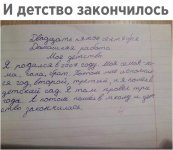 И детство закончилось
Двадцать пятое сентября
Домашняя работа
Мое детство
Я родился в 2009 году. Моя семья - ма-
ма, папа, брат. Потом мне исполнился
год, второй, третий, и я пошел в
детский сад. Я там провел три
года. А потом пошел в школу и дет-
ство закончилось.